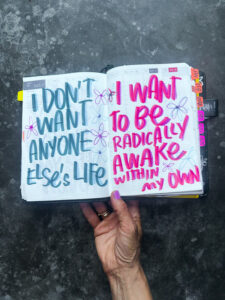 I DON'T
WANT
ANYONE
ELSE'S LIFE
I WANT
TO BE
RADICALLY
AWAKE
WITHIN
MY OWN